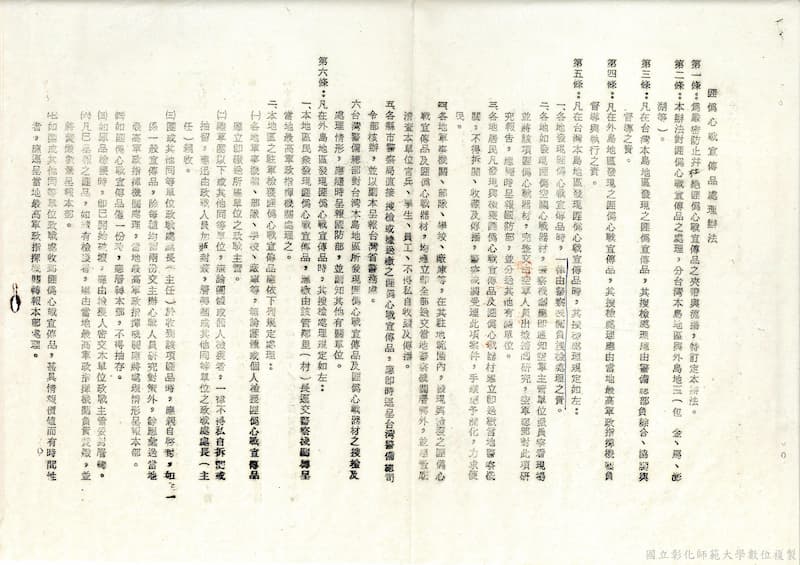 匪偽心戰宣傳品處理辦法
第一條：為嚴密防止并杜絕匪偽心戰宣傳品之夾帶與流播，特訂定本辦法。
第二條：本辦法對匪偽心戰宣傳品之處理，分台灣本島地區與外島地區（包 金、馬、澎
湖等）。
第三條：凡在台灣本島地區發現之匪偽宣傳品，其搜檢處理應由警備總部負綜合、協調與
督導之責。
第四條：凡在外島地區發現之匪偽心戰宣傳品，其搜檢處理應由當地最高軍政指揮機構負
督導與執行之責。
第五條：凡在台灣本島地區發現匪偽心戰宣傳品時，其搜檢處理規定如左：
一、各地發現匪偽心戰宣傳品時，一律由警察機關負搜檢處理之責。
二、各地如發現匪偽空飄心戰器材，
並將該項匪偽心戰器材，完整交由空軍人員出運
究報告，應隨時呈報國防部，並分送其他有關單位。
三、各地居民凡發現或檢獲匪偽心戰宣傳品及匪偽心戰器材應立即送繳當地警察機
關，不得拆閱、收藏及傳播，警察機關受理此項案件，手續應予簡化，力求便
民。
四、各地軍事機關、部隊、學校、廠庫等，在其駐地範圍內，發現與檢獲之匪偽心
戰宣傳品及匪偽心戰器材，均應立即全部送交當地警察機關層轉外，並應嚴厲
清查本單位官兵、學生、員工、不得私自收藏及傳播。
五、各縣市警察局直接搜檢或接受繳之匪偽心戰宣傳品，應即時逕呈台灣警備總司
令部核辦，並以副本呈報台灣省警務處。
六、台灣警備總部對台灣本島地區所發現匪偽心戰宣傳品及匪偽心戰器材之搜檢及
處理情形，應隨時呈報國防部，並副知其他有關單位。
第六條：凡在外島地區發現匪偽心戰宣傳品時，其搜檢處理規定如左：
一、本地區民眾發現匪偽心戰宣傳品，應繳由該管鄰里（村）長逕交警察機關轉呈
當地最高軍政指揮機關處理之。
二、本地區之駐軍檢獲匪偽心戰宣傳品應依下列規定處理：
㈠各地軍事機關、部隊、學校、廠庫等，無論團體或個人檢獲匪偽心戰宣傳品
應立即繳送所屬單位之政戰主管。
㈡團軍團以下或其他同等單位，無論團體或個人檢獲者，一律不得私自拆閱或
抽留，應迅由政戰人員加
任）親收。
㈢團或其他同等單位政戰處長（主任）於收到該項匪品時，應親自啓封，如
係一般宣傳品，除每種均留兩份交主辦心戰人員研究對策外，餘應彙送當地
最高軍政指揮機構處理，當地最高軍政指揮機構應將處理情形呈報本部。
㈣如匪偽心戰宣傳品僅一份，應層轉本部，不得抽存。
㈤如原品檢獲時，即已開始破壞，應由檢獲人密交本單位主管妥封層轉。
㈥凡已呈報之匪品，如續有檢獲者，應由當地最高軍政指揮機關負責焚燬，並
將焚燬數量呈報本部。
㈦如團或其他同等單位政戰處收到匪偽心戰宣傳品，甚具情報價值而有時間性
者，應逕呈當地最高軍政指揮機關轉報本部處理。
國立彰化師範大學數位複製